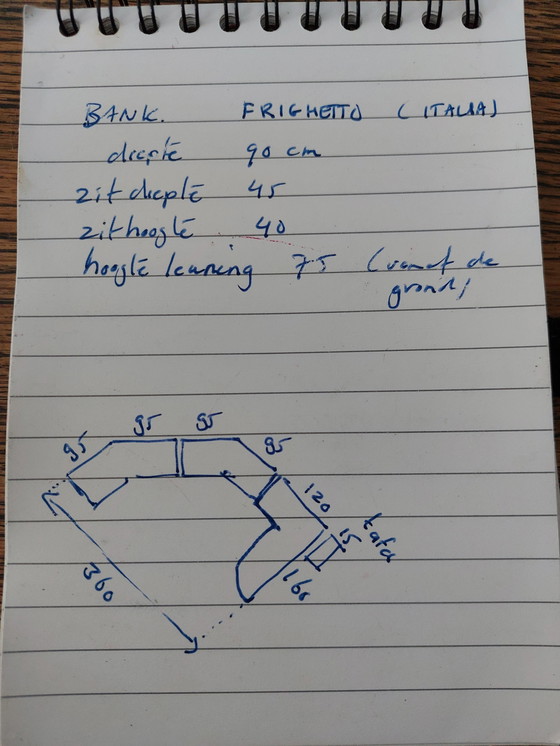 BANK. FRIGHETTO (ITALIA)
diepte 90 cm
zitdiepte 45
zithoogte 40
hoogte leuning 75 (vanaf de
grond)
95 95 95 95
120
15 tafel
160
360